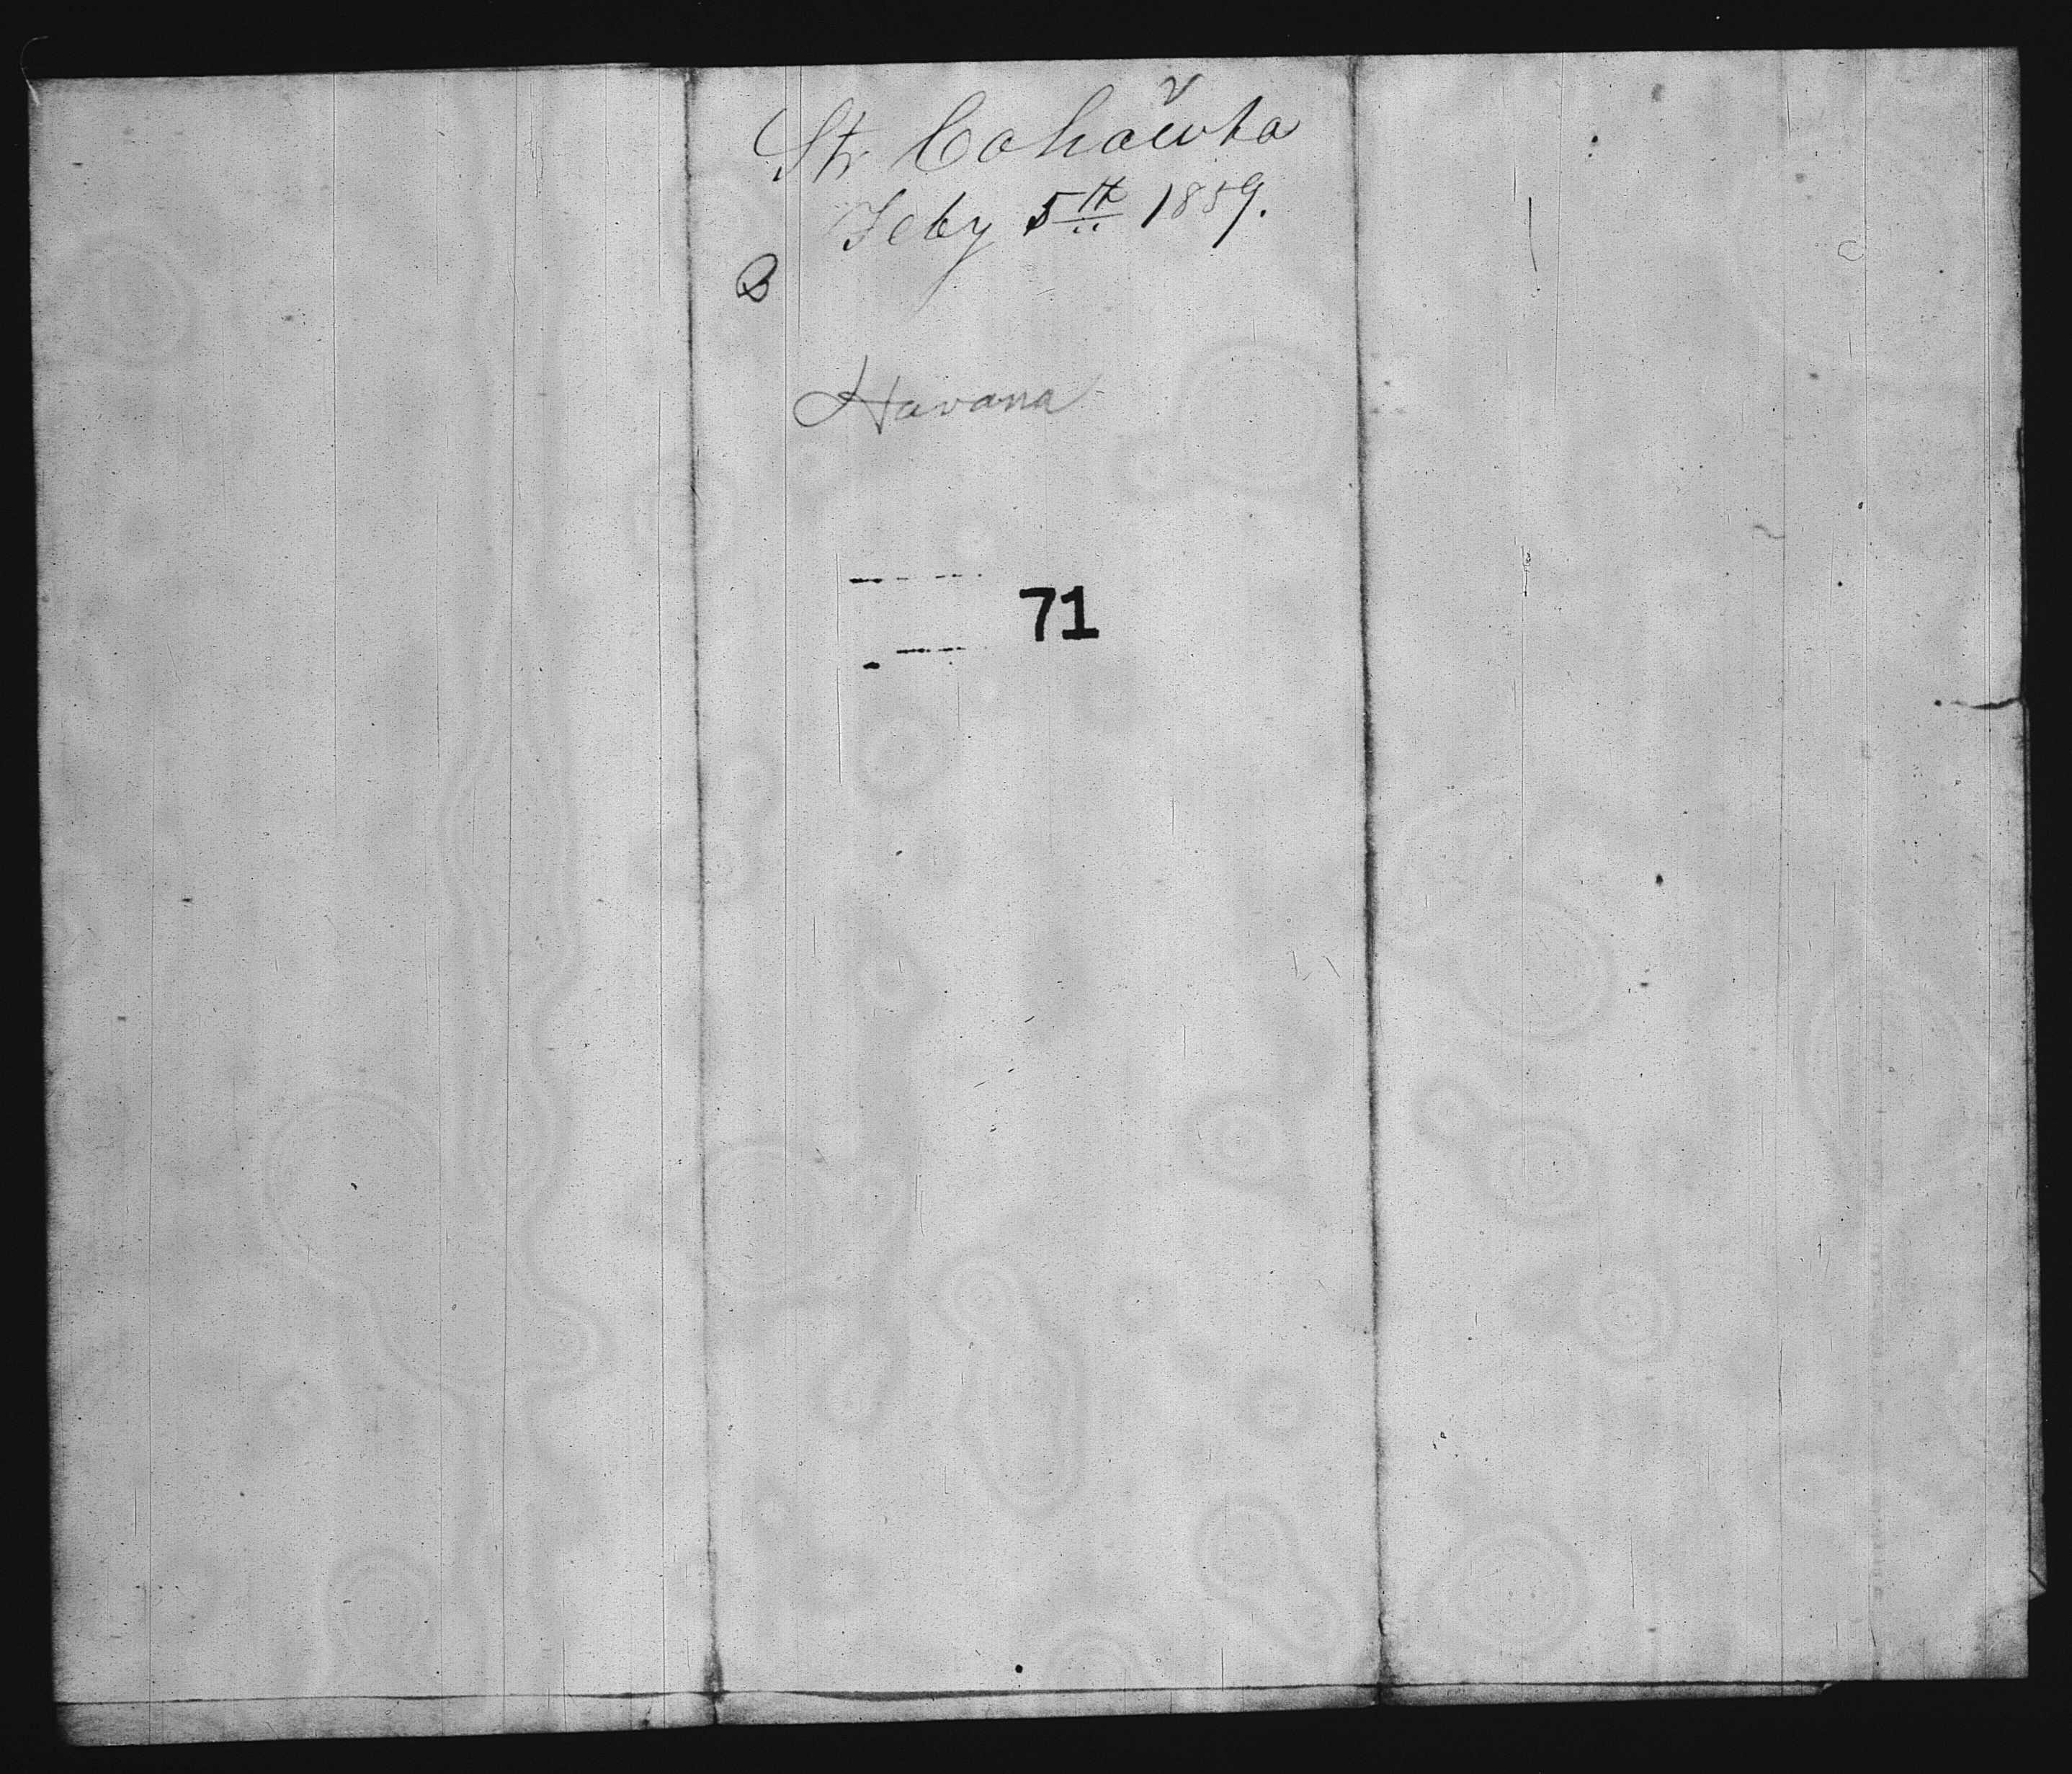 Str Cahawba
Feby 5th 1859.
B
Havana
71